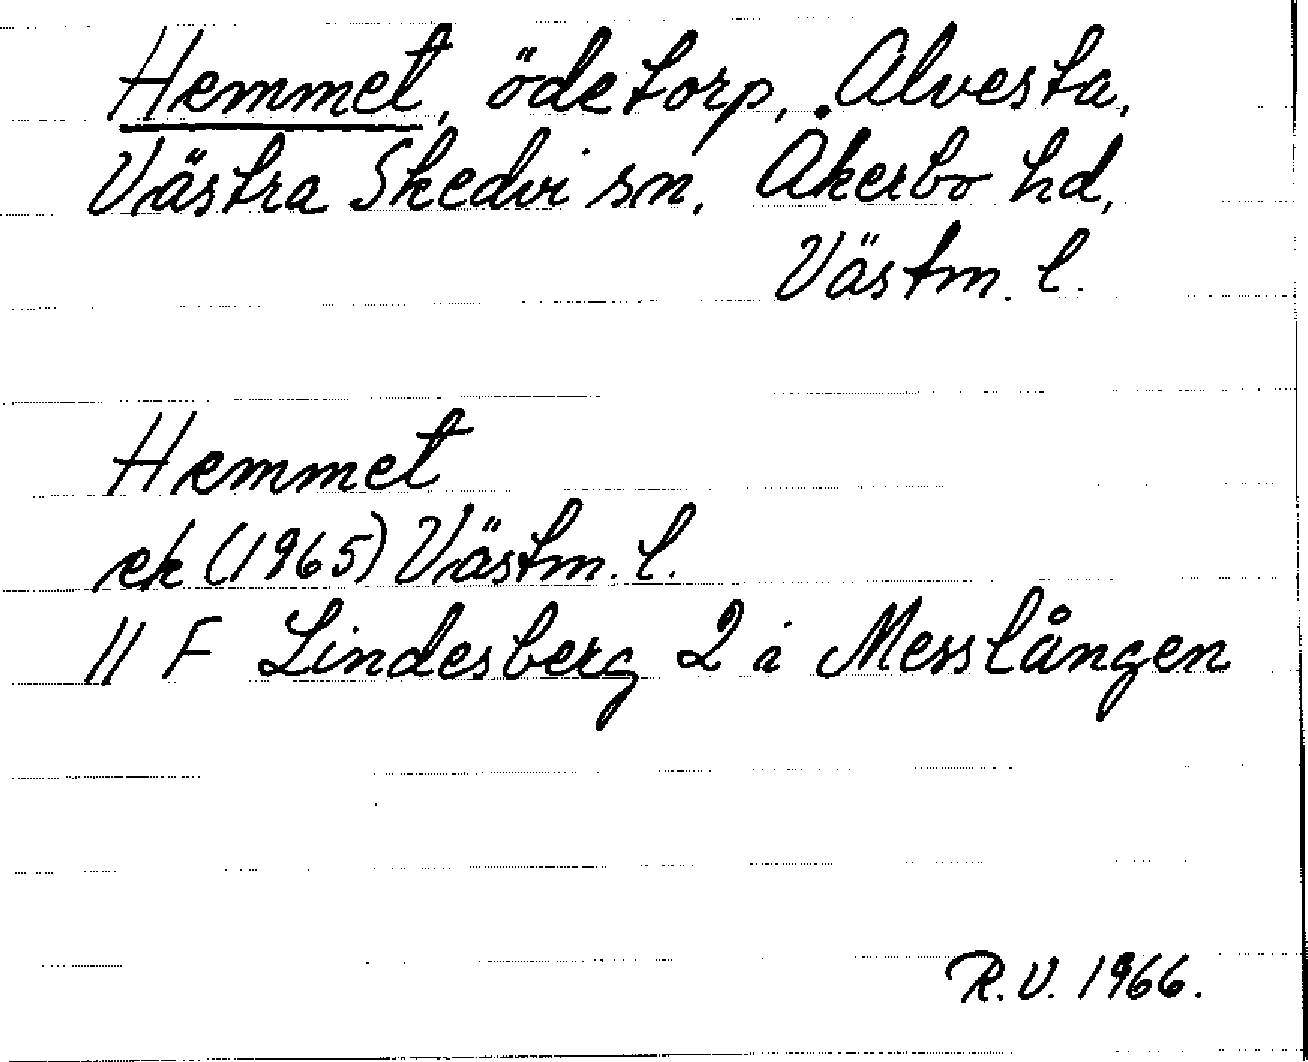 Hemmet, ödetorp, Alvesta,
Västra Skedvi sn, Åkerbo hd,
Västm. l.
Hemmet
ek (1965) Västm. l.
11 F Lindesberg 2 i Messlången
R.V. 1966.